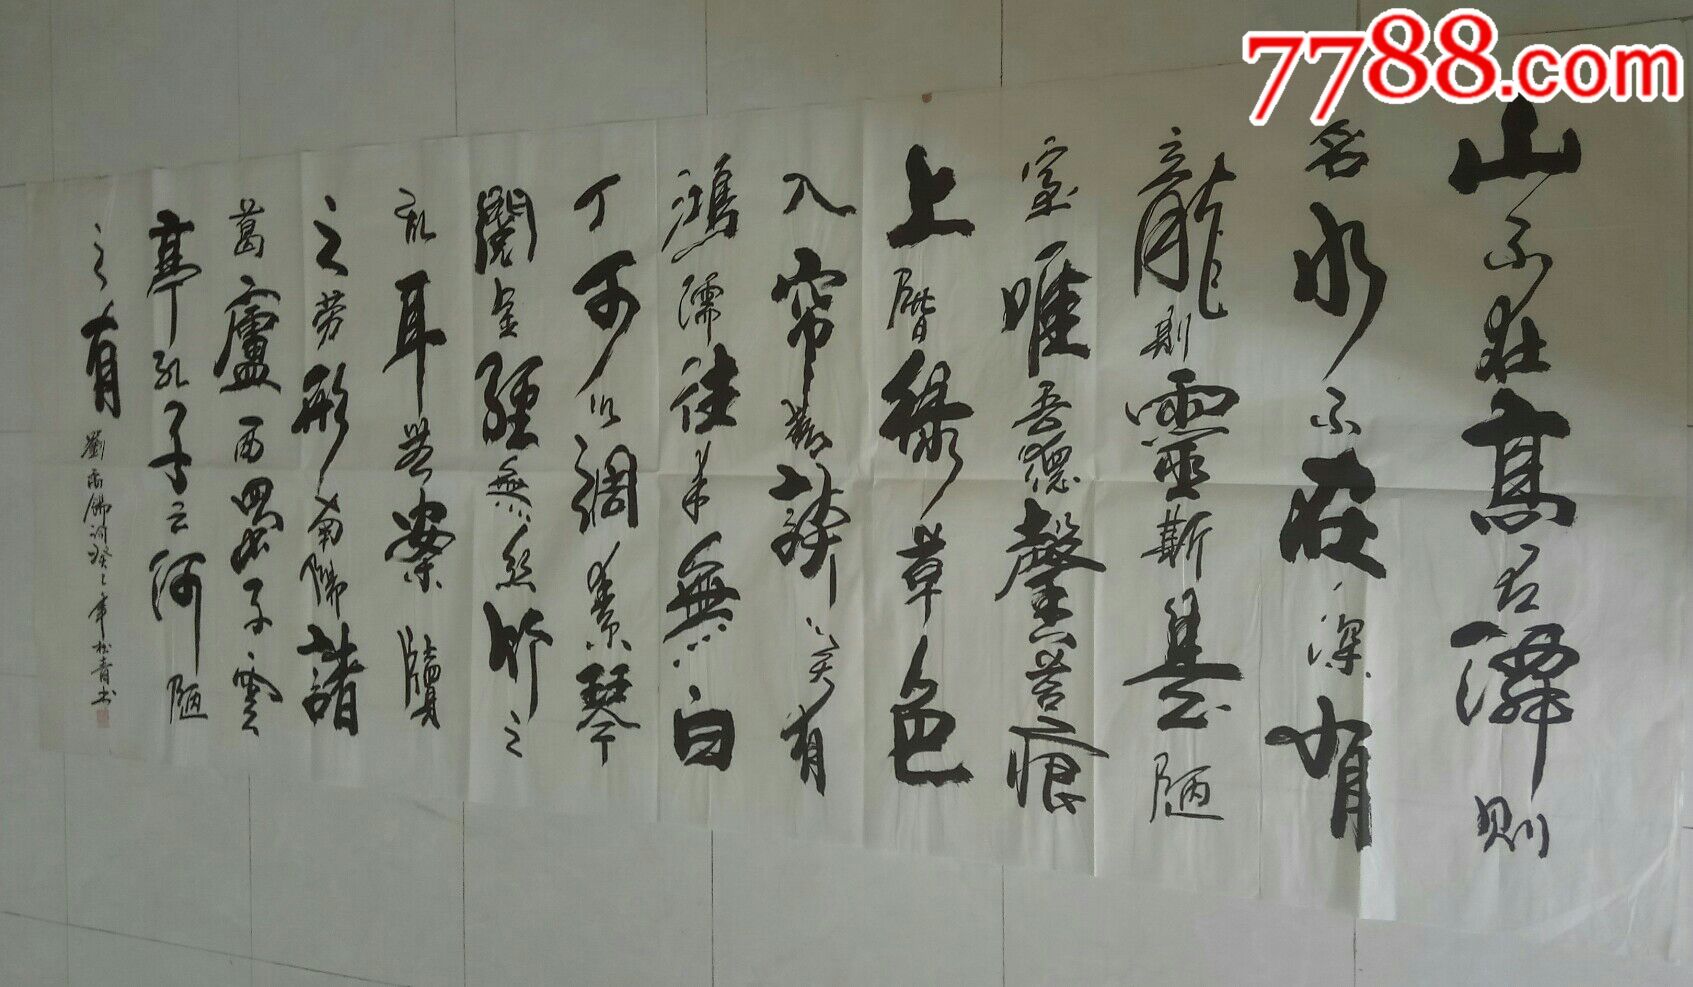 7788.com
山不在高有僊則
名水不在深有
龍則靈斯是陋
室唯吾德馨苔痕
上階綠草色
入帘青談笑有
鴻儒往来無白
丁可以調素琴
閱金經無絲竹之
亂耳無案牘
之劳形南陽諸
葛廬西蜀子雲
亭孔子云何陋
之有
劉禹錫詞癸巳年松青书